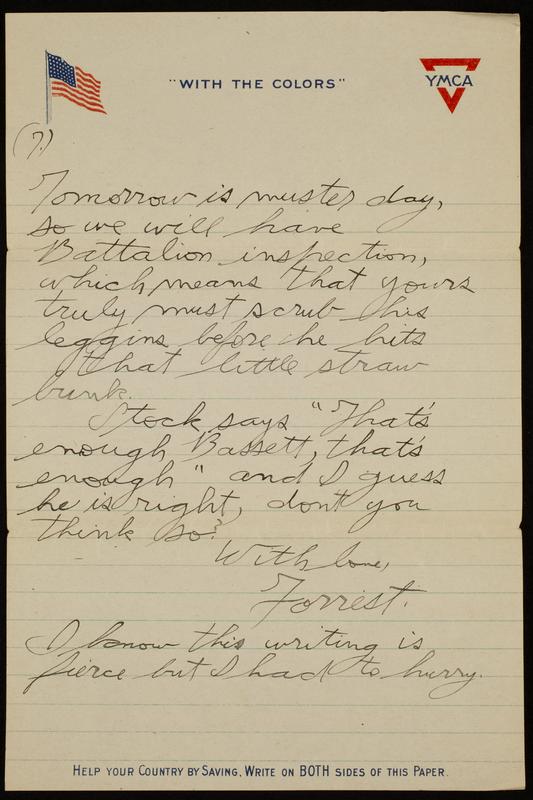 "WITH THE COLORS"
YMCA
(7.)
Tomorrow is muster day,
so we will have
Battalion inspection,
which means that yours
truly must scrub his
leggins before he hits
that little straw
bunk.
Stock says "That's
enough Bassett, that's
enough" and I guess
he is right, don't you
think so?
With love,
Forrest.
I know this writing is
fierce but I had to hurry.
HELP YOUR COUNTRY BY SAVING, WRITE ON BOTH SIDES OF THIS PAPER.